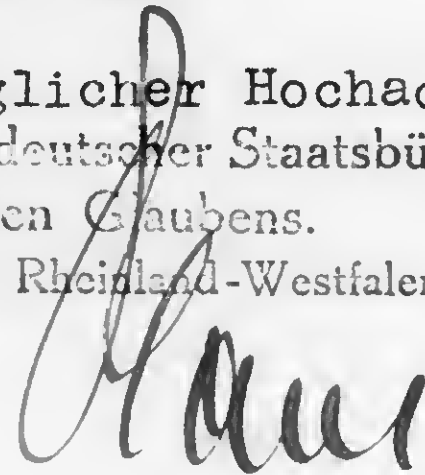 glicher Hochac
deutscher Staatsbü
en Glaubens.
Rheinland-Westfalen